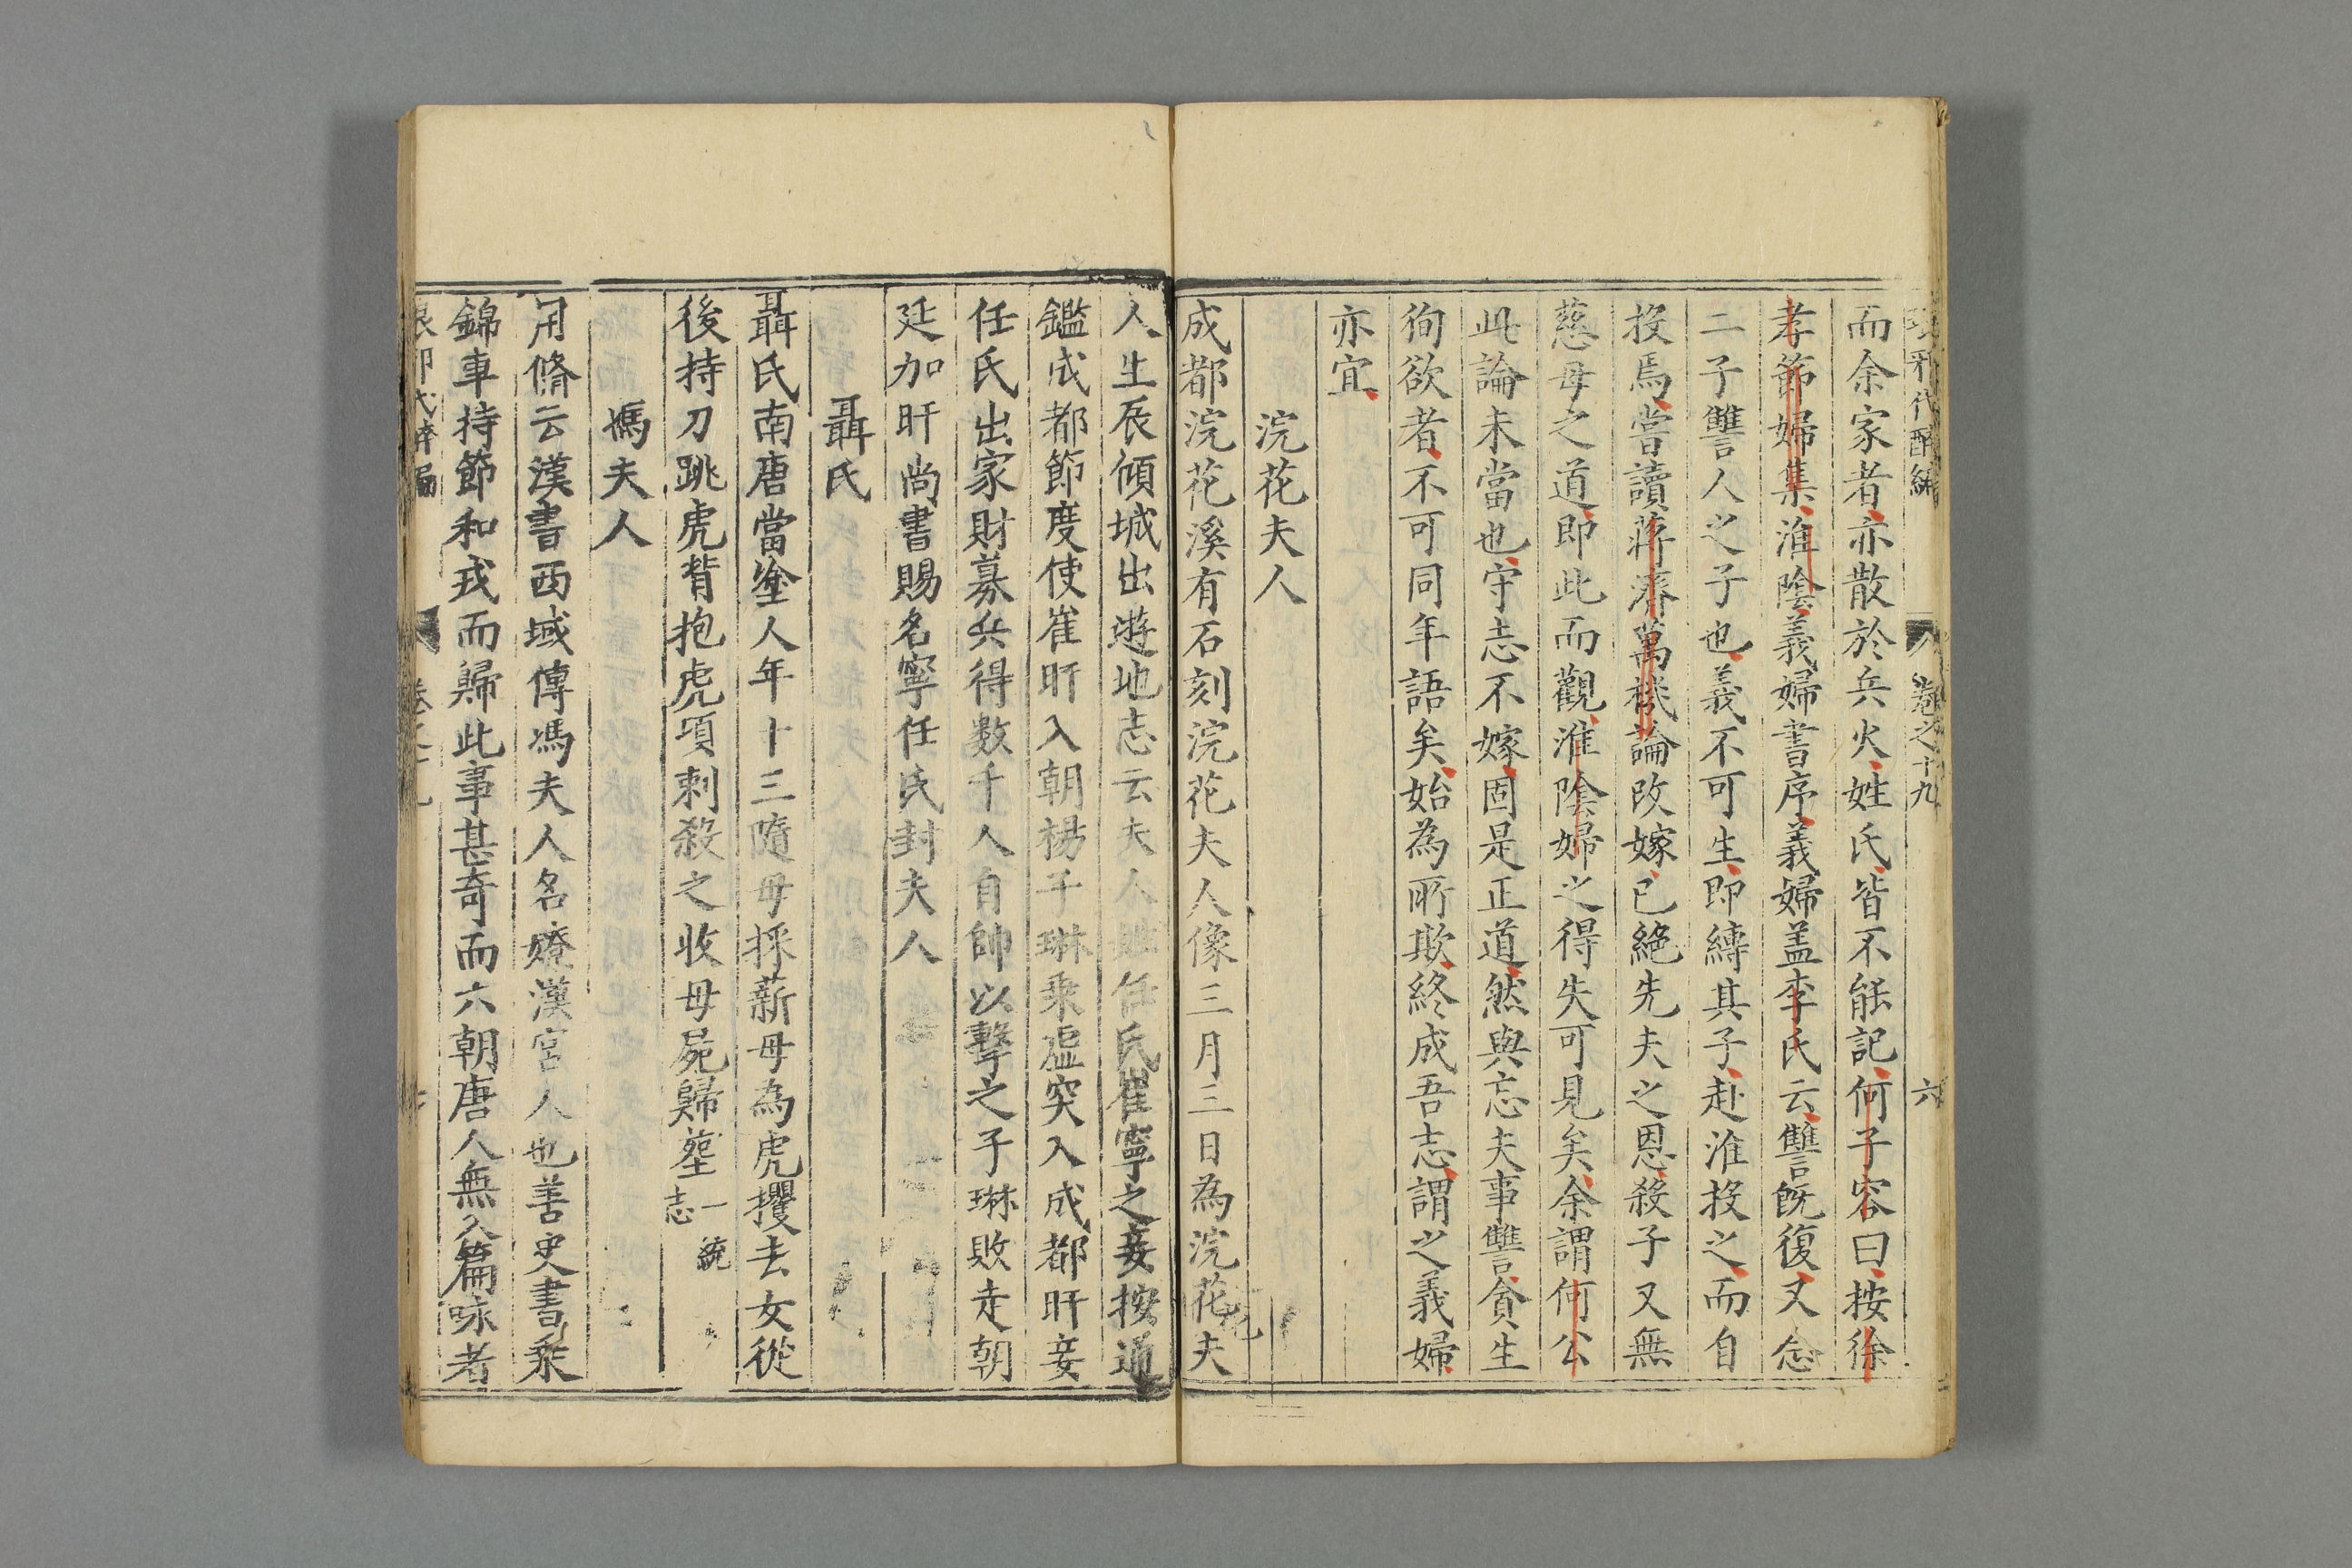 琅邪代醉編 卷之十九 六
而余家者亦散於兵火姓氏皆不能記何子容曰按徐
孝節婦集淮陰義婦書序義婦盖李氏云讐既復又念
二子讐人之子也義不可生即縛其子赴淮投之而自
投焉嘗讀蔣濟萬機論改嫁已絕先夫之恩殺子又無
慈母之道即此而觀淮陰婦之得失可見矣余謂何公
此論未當也守志不嫁固是正道然與忘夫事讐貪生
狥欲者不可同年語矣始為所欺終成吾志謂之義婦
亦宜
浣花夫人
成都浣花溪有石刻浣花夫人像三月三日為浣花夫
人生辰傾城出遊地志云夫人姓任氏崔寧之妾按通
鑑成都節度使崔旰入朝楊子琳乘虛突入成都旰妾
任氏出家財募兵得数千人自帥以擊之子琳敗走朝
廷加旰尚書賜名寧任氏封夫人
聶氏
聶氏南唐當塗人年十三隨母採薪母為虎攫去女從
後持刀跳虎背抱虎項刺殺之收母屍歸塟一統志
馮夫人
用脩云漢書西域傳馮夫人名嫽漢宮人也善史書乘
錦車持節和戎而歸此事甚奇而六朝唐人無入篇咏者